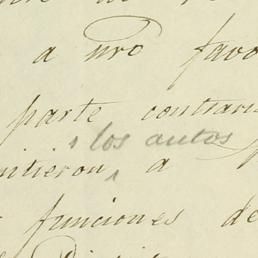 a nro favo
parte contrari
los autos
mitieron a
funciones de